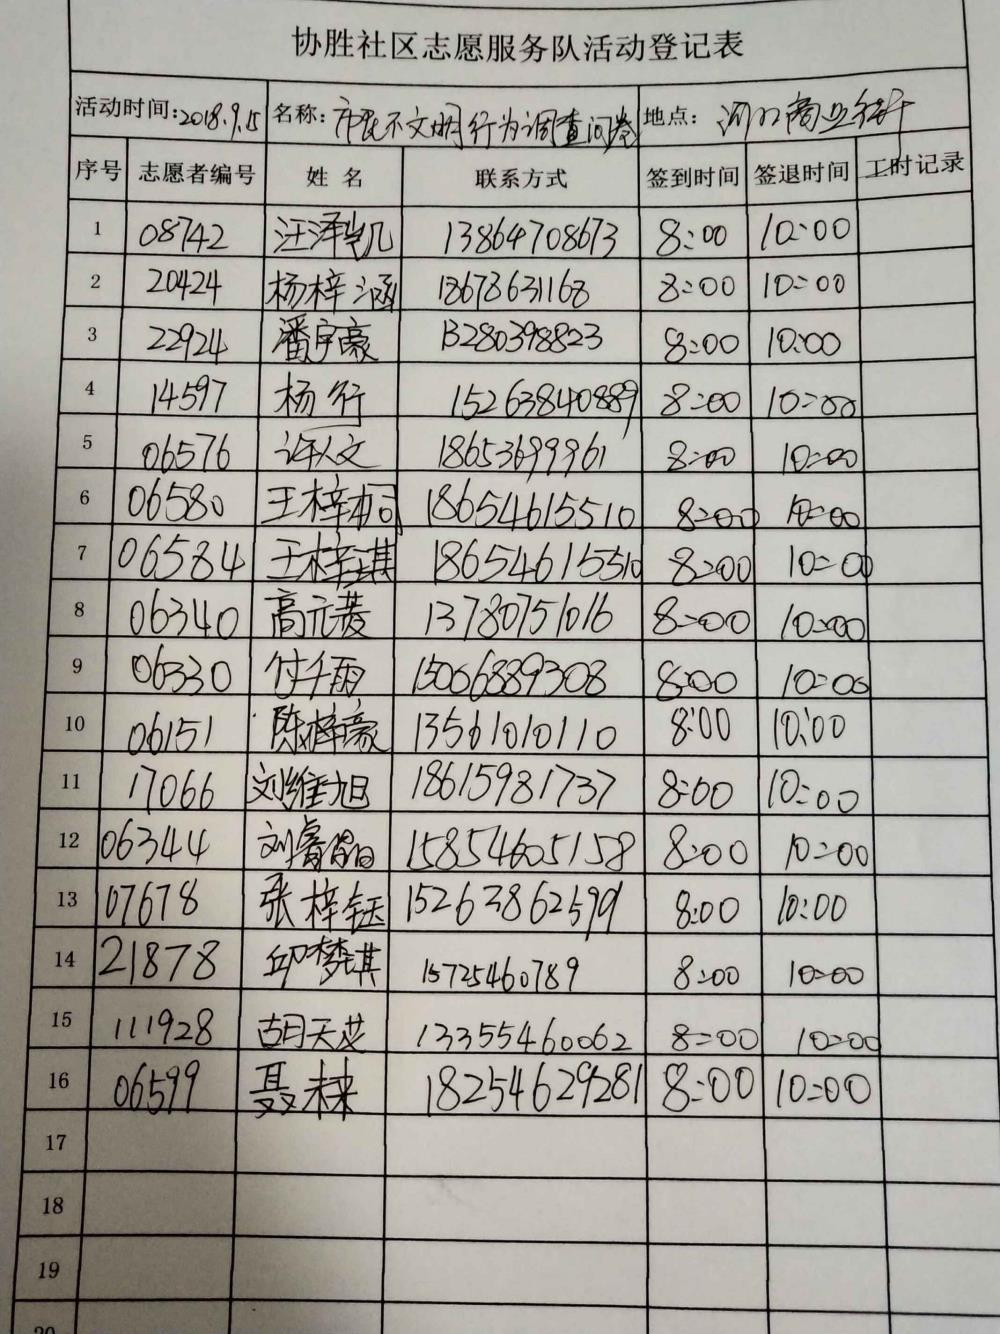 协胜社区志愿服务队活动登记表
活动时间:2018.9.15 名称: 市民不文明行为调查问卷 地点: 河口商业街
序号 志愿者编号 姓 名 联系方式 签到时间 签退时间 工时记录
1 08742 汪泽凯 13864708673 8:00 10:00
2 20424 杨梓涵 18678631168 8:00 10:00
3 22924 潘宇豪 13280398823 8:00 10:00
4 14597 杨行 15263840889 8:00 10:00
5 06576 许人文 18653699961 8:00 10:00
6 06580 王梓桐 18654615510 8:00 10:00
7 06584 王梓琪 18654615510 8:00 10:00
8 06340 高元菱 13780751016 8:00 10:00
9 06330 付千雨 15066889308 8:00 10:00
10 06151 陈梓豪 13561010110 8:00 10:00
11 17066 刘维旭 18615981737 8:00 10:00
12 06344 刘睿 15854605158 8:00 10:00
13 07678 张梓钰 15263862599 8:00 10:00
14 21878 邱梦琪 15725460789 8:00 10:00
15 111928 胡天芷 13355460062 8:00 10:00
16 06599 聂未来 18254629281 8:00 10:00
17
18
19
20